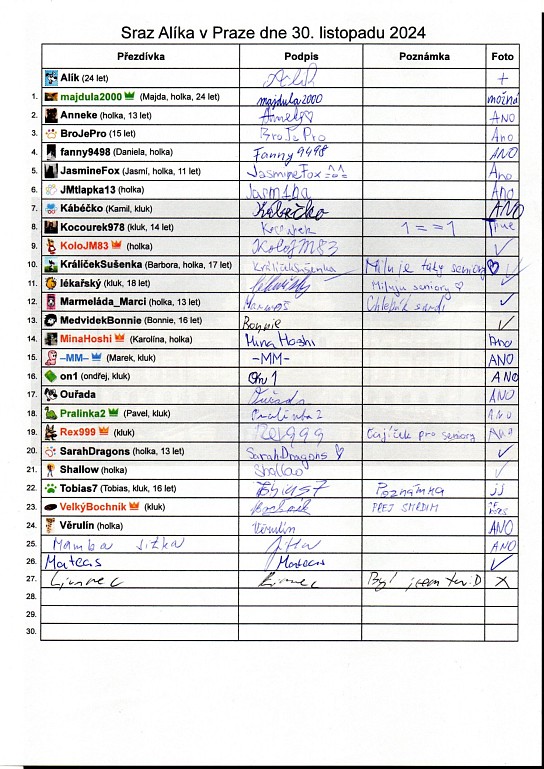 Sraz Alíka v Praze dne 30. listopadu 2024
Přezdívka Podpis Poznámka Foto
Alík (24 let) Alík +
1. majdula2000 (Majda, holka, 24 let) majdula2000 možná
2. Anneke (holka, 13 let) Anneke♡ ANO
3. BroJePro (15 let) BroJePro Ano
4. fanny9498 (Daniela, holka) Fanny9498 ANO
5. JasmineFox (Jasmí, holka, 11 let) JasmineFox Ano
6. JMtlapka13 (holka) Ano
7. Kábéčko (Kamil, kluk) Kábéčko ANO
8. Kocourek978 (kluk, 14 let) 1 == 1 True
9. KoloJM83 (holka) KoloJM83 ✓
10. KrálíčekSušenka (Barbora, holka, 17 let) KrálíčekSušenka Miluje taky seniory ♡ ✓
11. lékařský (kluk, 18 let) Miluju seniory ♡ ✓
12. Marmeláda_Marci (holka, 13 let) ✓
13. MedvidekBonnie (Bonnie, 16 let) Bonnie ✓
14. MinaHoshi (Karolína, holka) Mina Hoshi Ano
15. –MM– (Marek, kluk) –MM– ANO
16. on1 (ondřej, kluk) On1 ANO
17. Ouřada Ouřada ANO
18. Pralinka2 (Pavel, kluk) Pralinka2 ANO
19. Rex999 (kluk) Rex999 čajíček pro seniory Ano
20. SarahDragons (holka, 13 let) SarahDragons ♡ ✓
21. Shallow (holka) Shallow ✓
22. Tobias7 (Tobias, kluk, 16 let) Tobias7 Poznámka jj
23. VelkýBochník (kluk) Bochník
24. Věrulín (holka) Věrulín ANO
25. Mamba Jitka Jitka ANO
26. Mateas Mateas ✓
27. Byl jsem tu :D X
28.
29.
30.